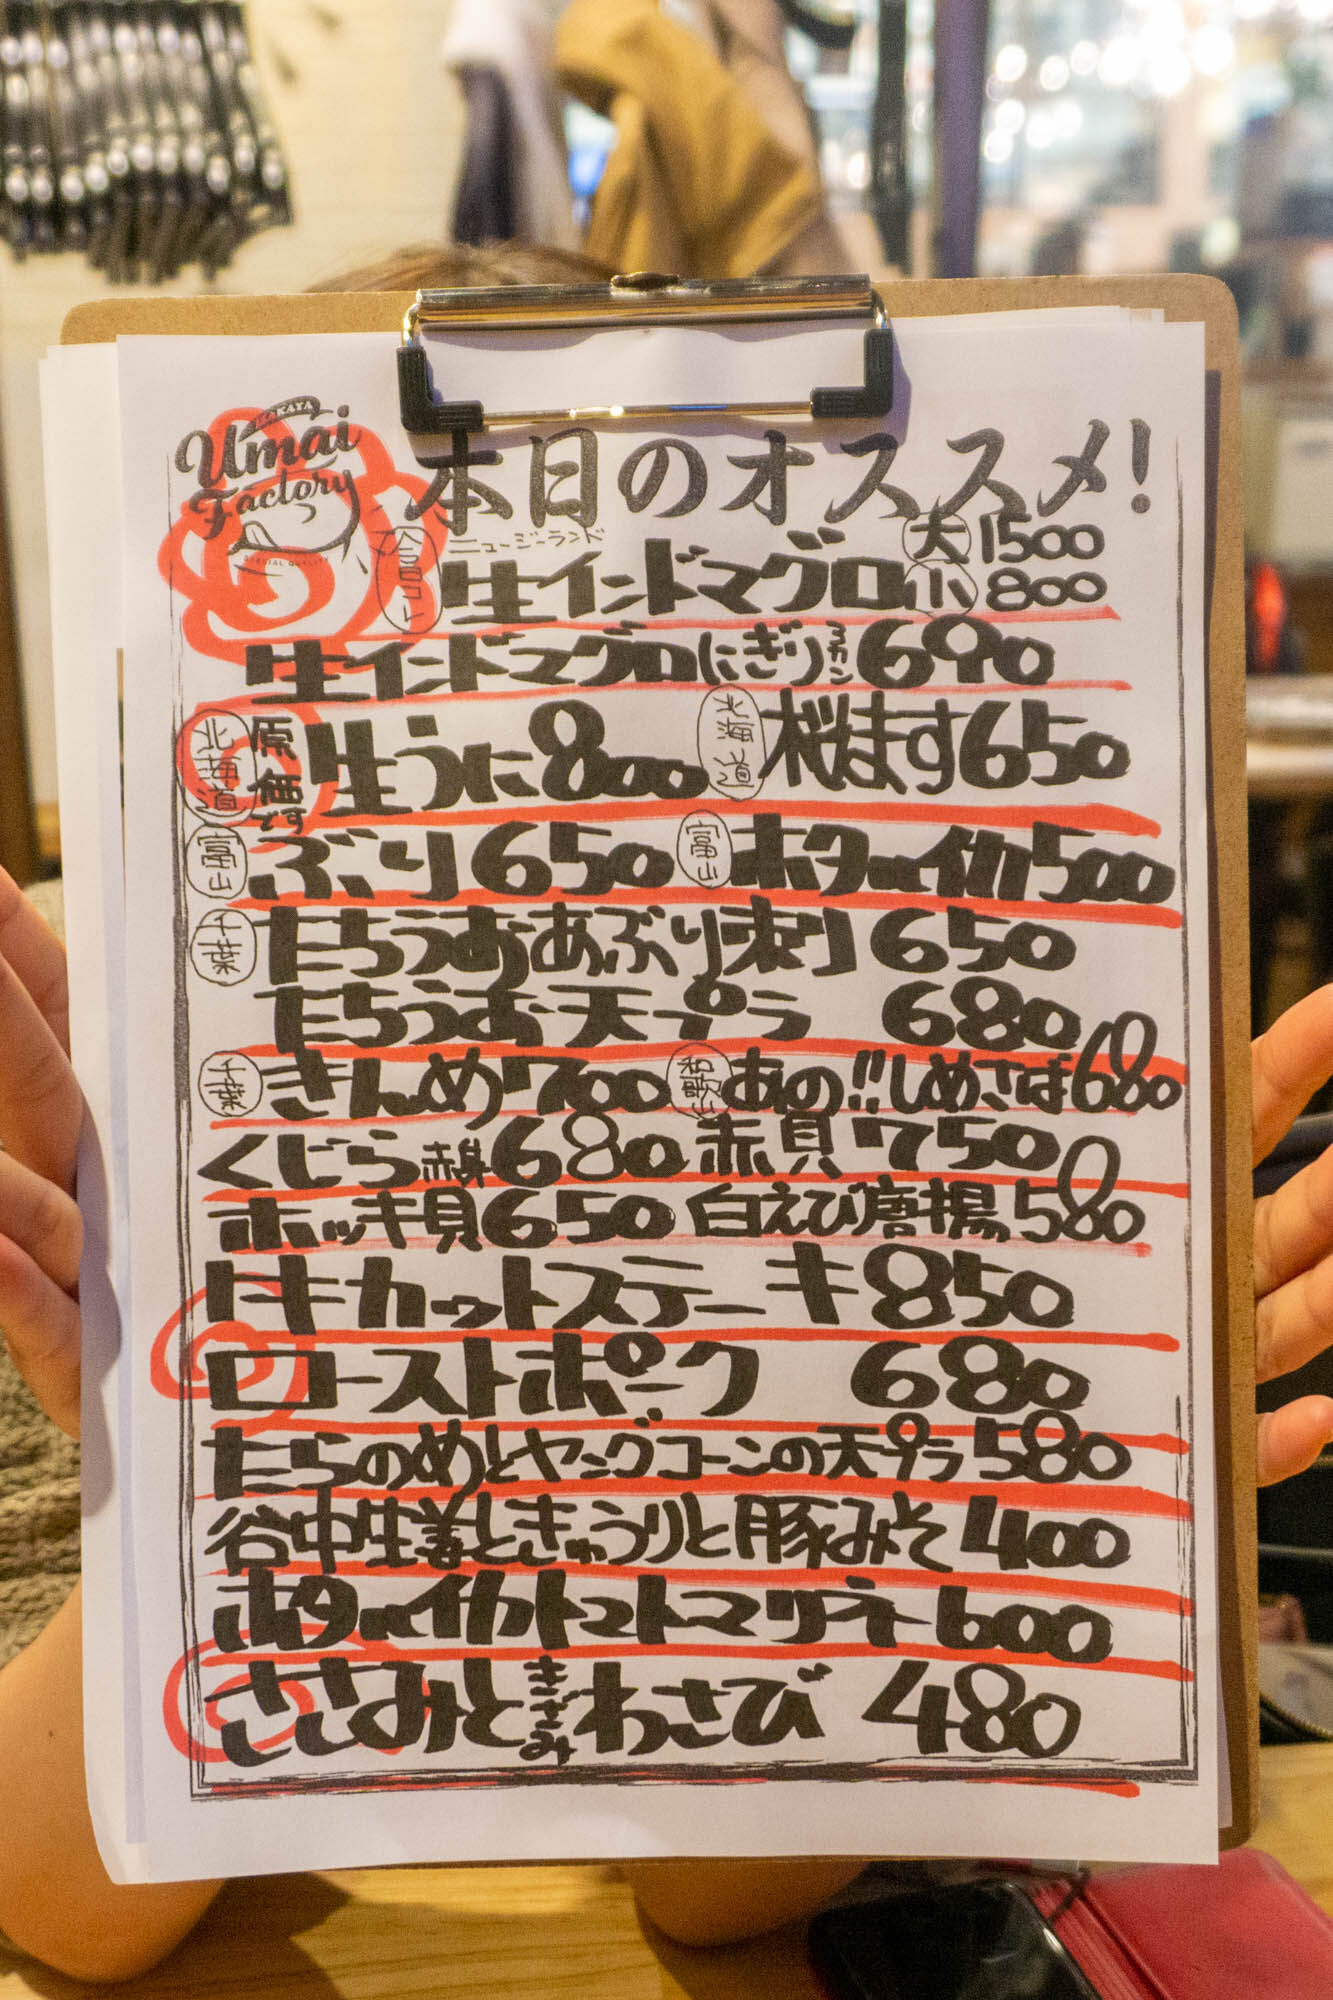 KAYA
Umai
Factory
SPECIAL QUALITY
本日のオススメ!
今日コレ ニュージーランド 生インドマグロ 大 1500 小 800
生インドマグロにぎり 3カン 690
北海道 原価です 生うに 800 北海道 桜ます 650
富山 ぶり 650 富山 ホタルイカ 500
千葉 たちうおあぶり刺 650
たちうお天プラ 680
千葉 きんめ 700 和歌山 あの!!しめさば 680
くじら赤身 680 赤貝 750
ホッキ貝 650 白えび唐揚 580
トキカットステーキ 850
ローストポーク 680
たらのめとヤングコーンの天プラ 580
谷中生姜ときゅうりと豚みそ 400
ホタルイカトマトマリネ 600
ささみときざみわさび 480